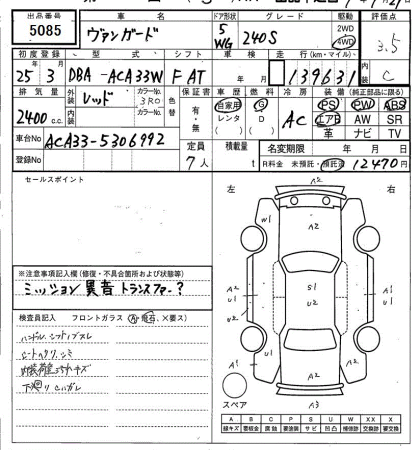 出品番号 車名 ドア形状 グレード 駆動 評価点
5085 ヴァンガード 5 WG 240S 2WD 4WD 3.5
初度登録 型式 シフト 車検 走行(km・マイル) 内装
25年3月 DBA-ACA33W F AT 年 月 139631 C
排気量 外装 カラーNo. 色替 保証書 車歴 燃料 冷房 装備(純正部品に限る)
2400c.c. レッド 3R0 有・無 自家用 G AC PS PW ABS
内装 カラーNo. レンタ D エアB AW SR
革 ナビ TV
車台No ACA33-5306992 定員 積載量 名変期限 年 月 日
登録No 7人 t R料金 未預託・預託済 12470円
セールスポイント
左 右
A2
W1
A2
A2 U1
S1 U2
A2 U1
U2
A1
U1
U1
A1
A2
A3
スペア
※注意事項記入欄(修復・不具合箇所および状態等)
ミッション異音 トランスファー?
検査員記入 フロントガラス(A・飛石、×要ス)
ハンドル、シフトノブスレ
シートヘタリ、シミ
下廻り サビ
A B C P S U W X XX
線キズ 要板金 腐食 要塗装 サビ 凹凸 補修跡 要交換 交換済